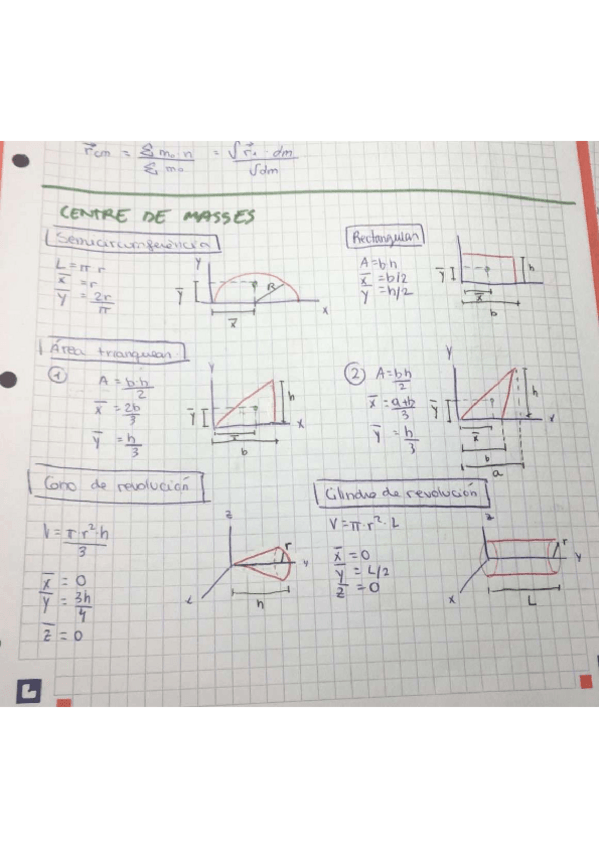 r⃗cm = Σ m₀ · n / Σ m₀ = √r⃗. · dm / √dm
CENTRE DE MASSES
Semicircumferència
L = π r
x̄ = r
ȳ = 2r/π
y
ȳ
R
x̄
x
Rectangular
A = b·h
x̄ = b/2
ȳ = h/2
ȳ
h
x̄
b
Área triangular
①
A = b·h/2
x̄ = 2b/3
ȳ = h/3
y
ȳ
h
x
x̄
b
②
A = bh/2
x̄ = a+b/3
ȳ = h/3
y
ȳ
h
x
x̄
b
a
Cono de revolución
V = π·r²·h/3
x̄ = 0
ȳ = 3h/4
z̄ = 0
z
r
y
h
Cilindro de revolución
V = π·r²·L
x̄ = 0
ȳ = L/2
z̄ = 0
z
r
y
x
L